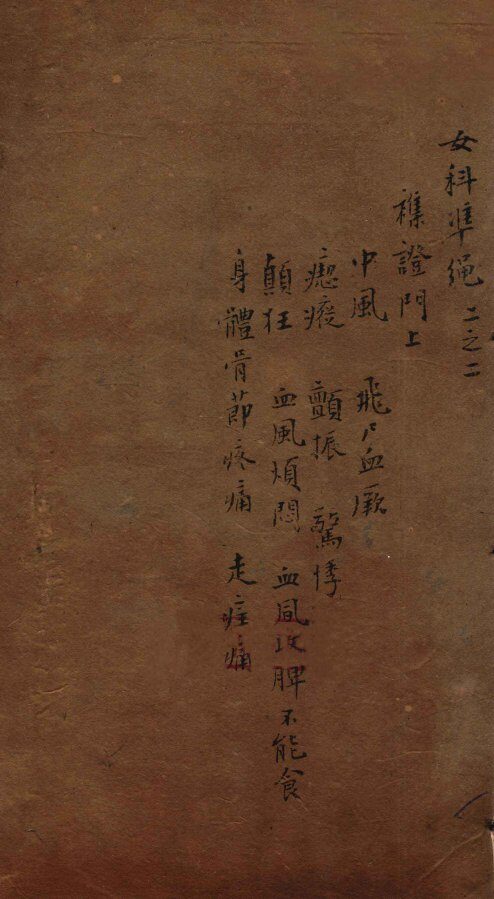 女科準绳 二之二
襍證門上
中風 飛尸血厥
瘛瘲 顫振 驚悸
顛狂 血風煩悶 血風攻脾不能食
身體骨節疼痛 走疰痛